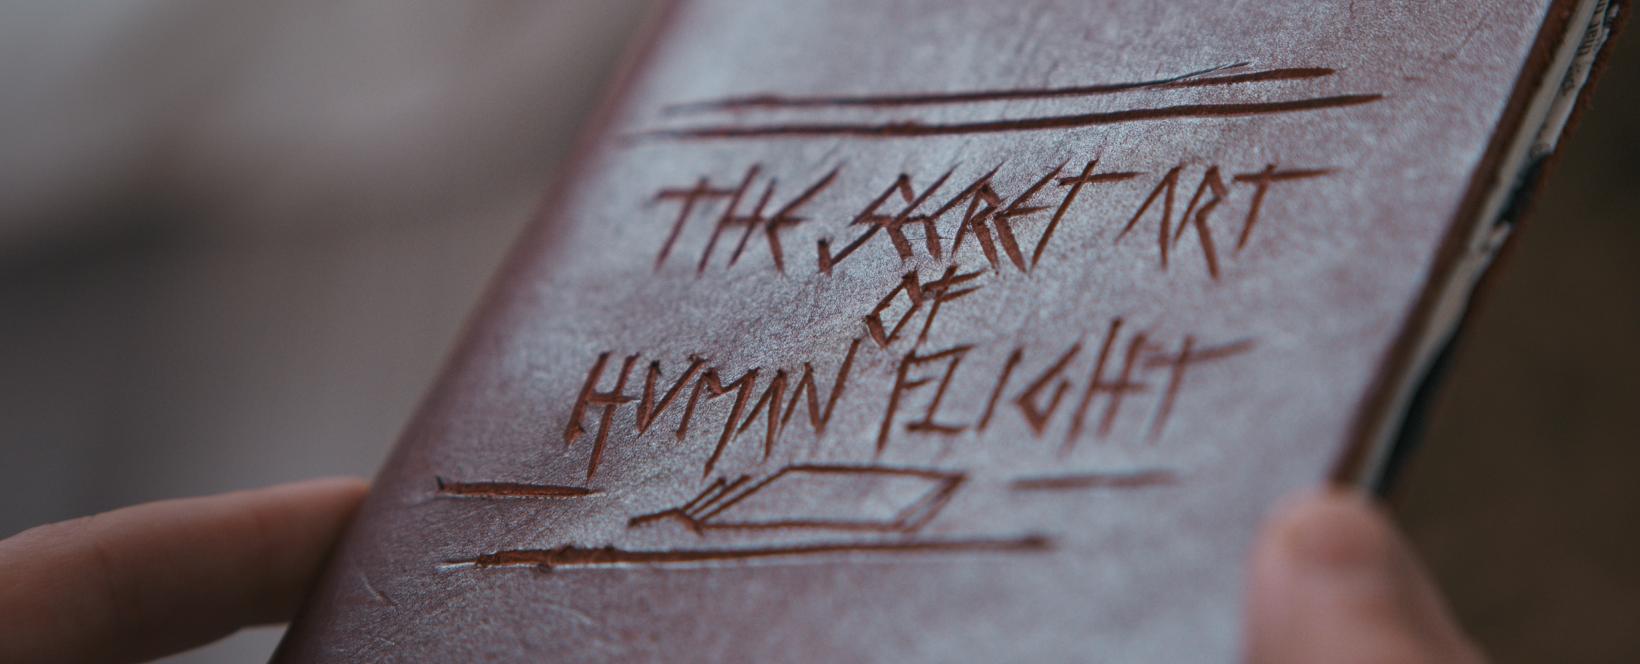 THE SECRET ART
OF
HUMAN FLIGHT